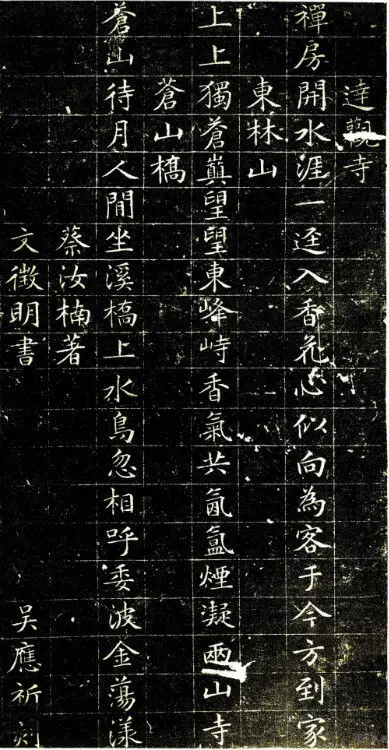 達觀寺
禪房開水涯一逕入香花心似向為客于今方到家
東林山
上上獨蒼巔望望東峰峙香氣共氤氳煙凝兩山寺
蒼山橋
蒼山待月人閒坐溪橋上水鳥忽相呼委波金蕩漾
蔡汝楠著
文徵明書
吴應祈刻